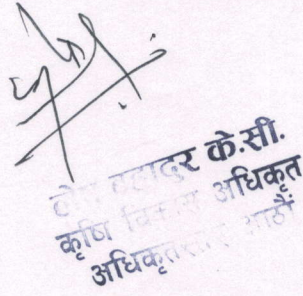 बहादुर के.सी.
कृषि विकास अधिकृत
अधिकृतस्तर आठौं